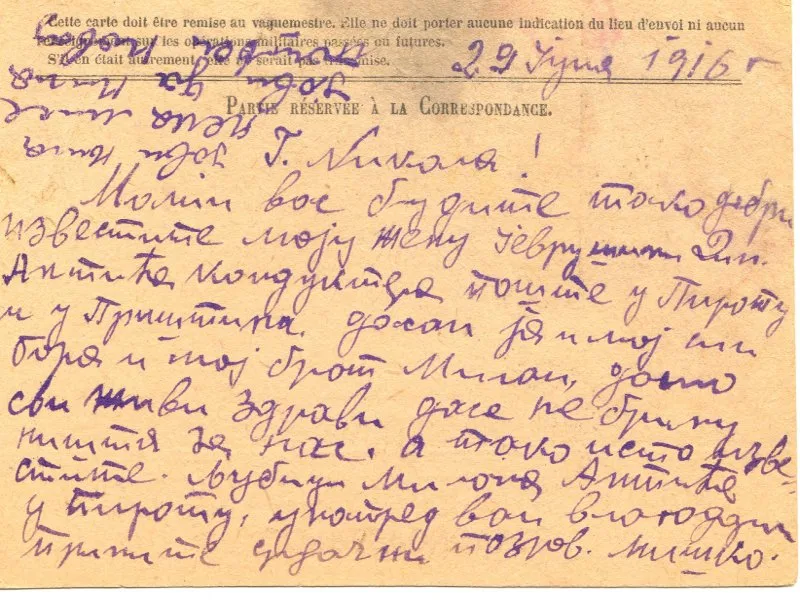 Cette carte doit être remise au vaguemestre. Elle ne doit porter aucune indication du lieu d'envoi ni aucun
renseignement sur les opérations militaires passées ou futures.
S'il en était autrement, elle ne serait pas transmise.
29 Јуна 1916 г
Partie réservée à la Correspondance.
Г. Никола!
Молим вас будите тако добри
известите моју жену Јевру
Антића кондуктера поште у Пироту
и у Приштина. дасам ја и мој син
бора и мој брат Милан, дасмо
сви живи здрави дасе не брину
ништа за нас. а тако исто изве-
стите. љубицу Милана Антића
у Пироту, унапред вам благодарим
примите срдачни поздрав. Мишко.